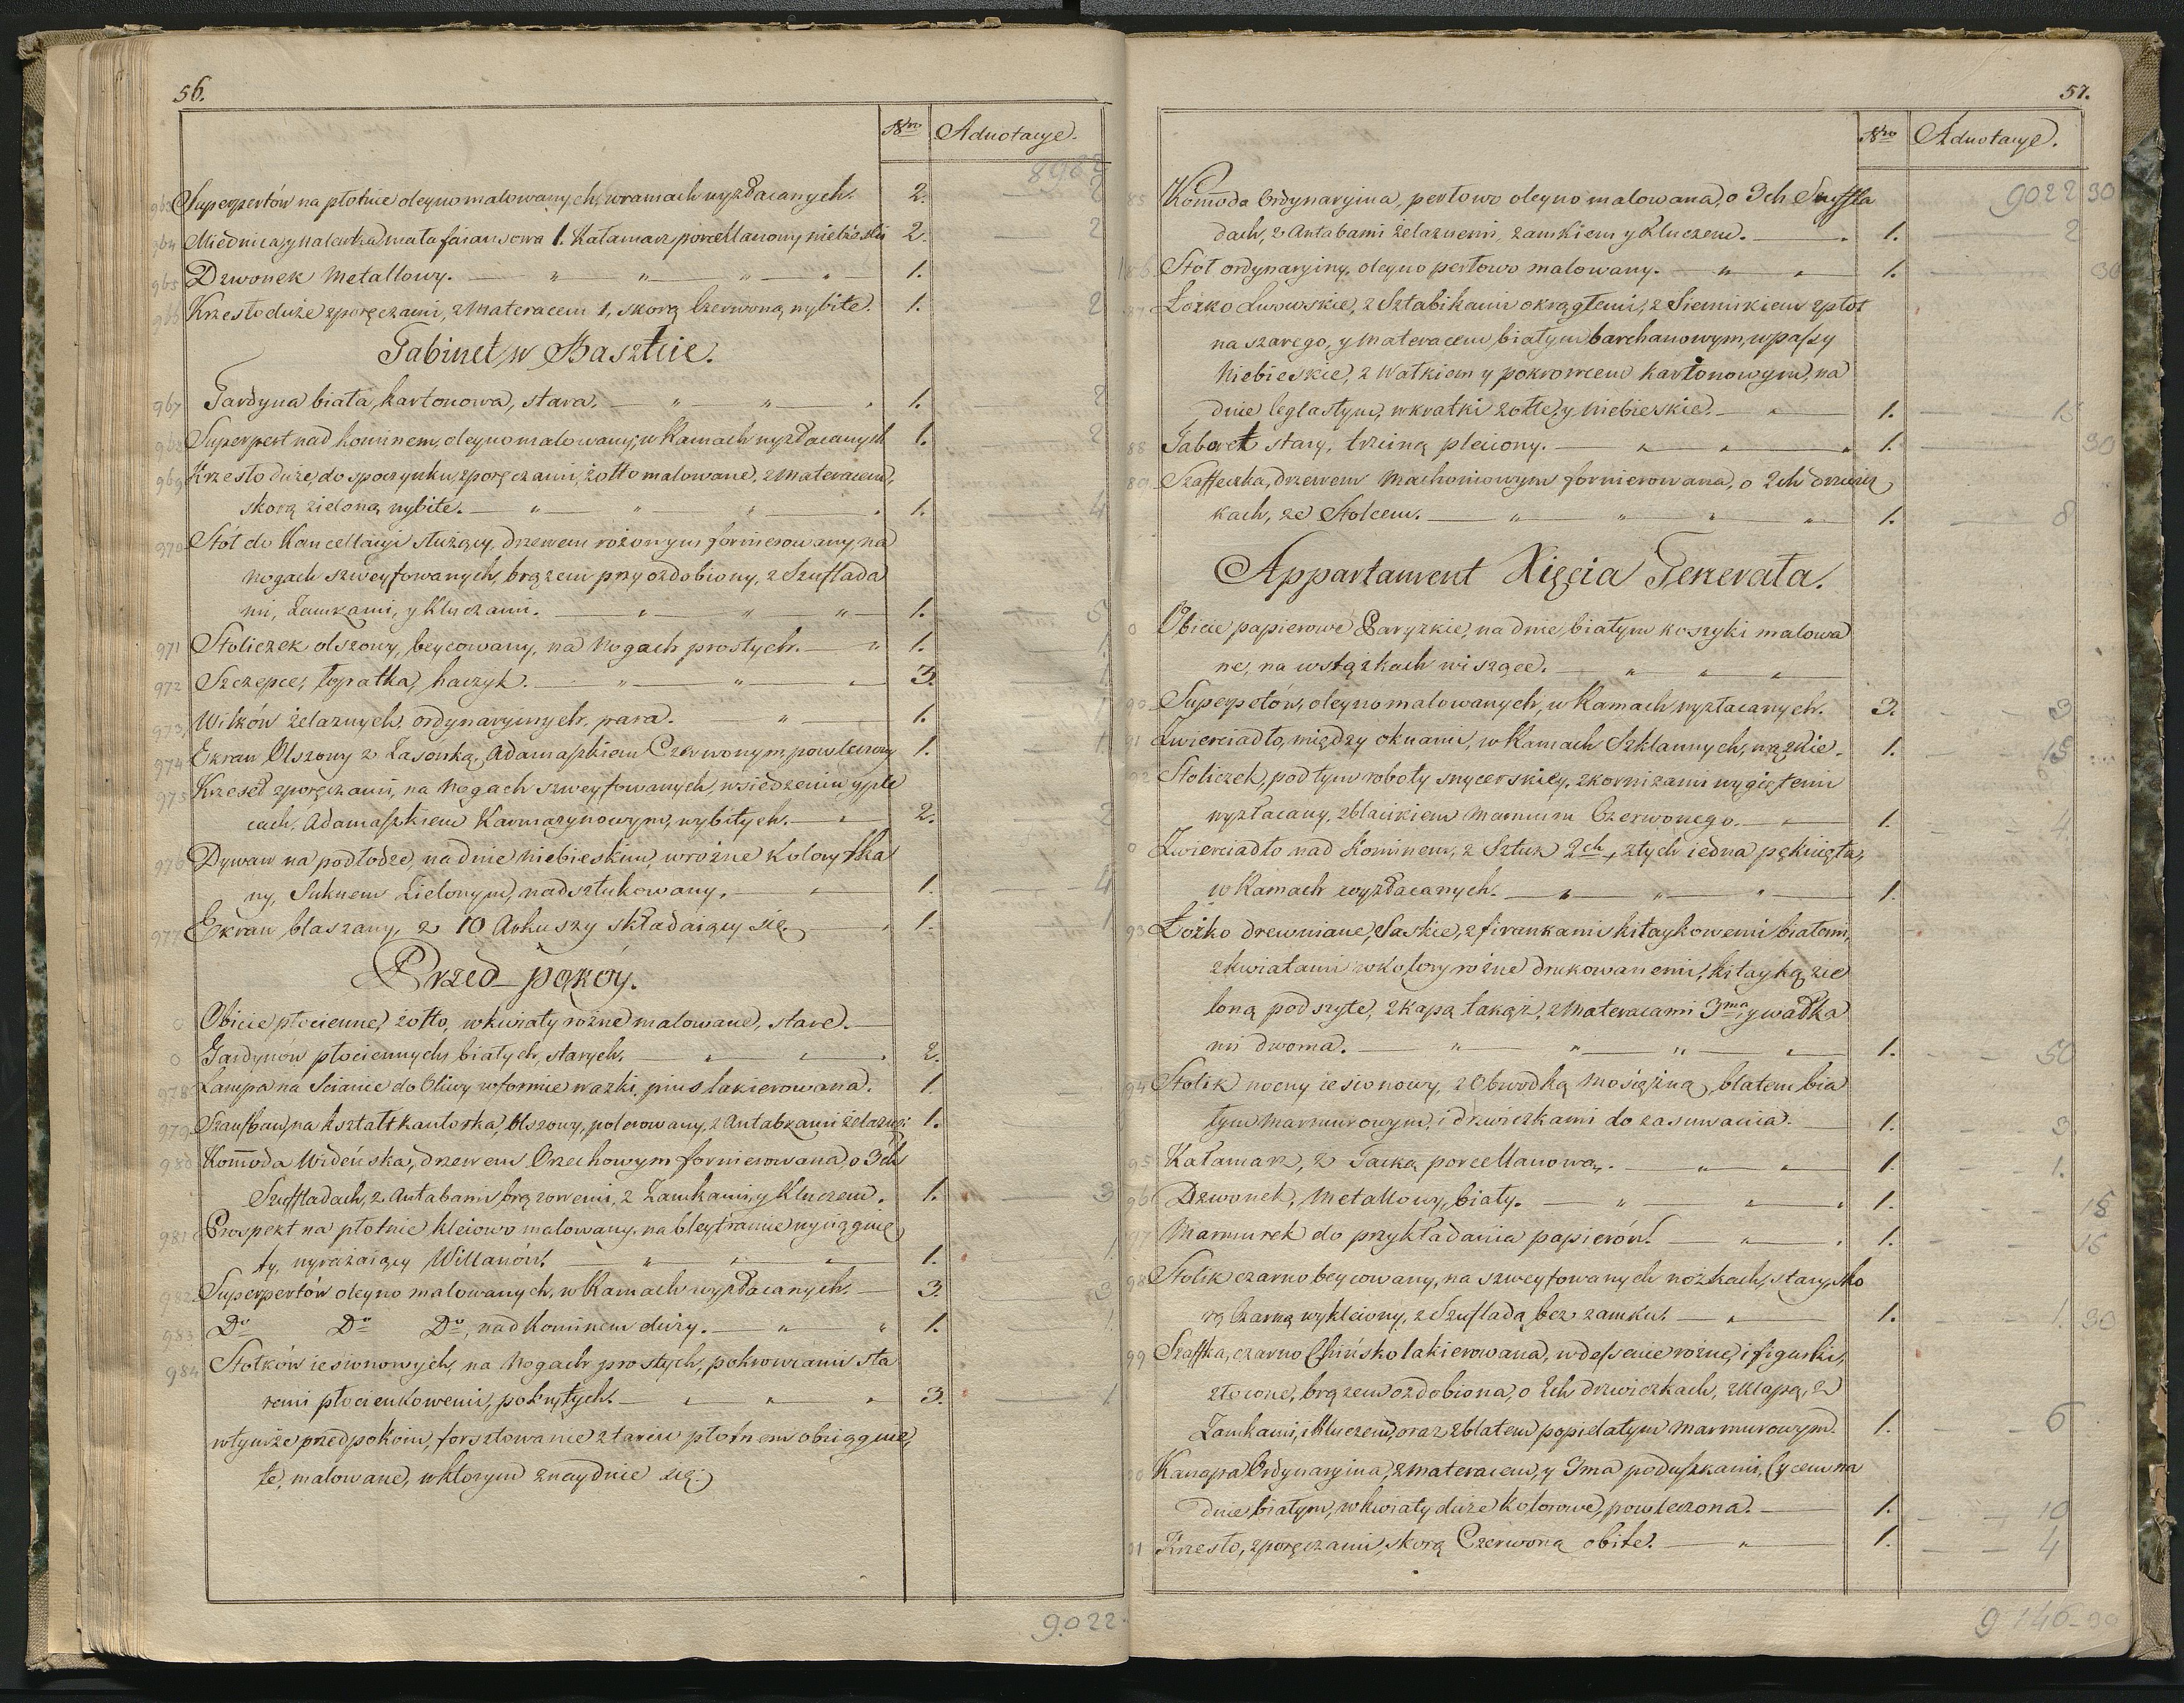 56.
Nro Adnotacye.
8983
963 Superpertów na płotnie oleyno malowanych, w ramach wyzłacanych. 2. 2
964 Miednica, y Nalewka mała faiansowa 1. Kałamarz porcellanowy niebieski 2. 2
965 Dzwonek Metallowy. 1.
966 Krzesło duże z poręczami, z Materacem 1, skorą Czerwoną wybite. 1. 2
Gabinet w Baszcie.
967 Gardyna biała, kartonowa, stara. 1. 2
968 Superpert nad kominem, oleyno malowany, w Ramach wyzłacanych 1. 2
969 Krzesło duże, do spoczynku, z poręczami, żołto malowane, z Materacem,
skorą zieloną wybite. 1. 4
970 Stół do Kancellaryi służący, drzewem rożowym fornierowany, na
Nogach szweyfowanych, brązem przyozdobiony, z Szuflada
mi, Zamkami, y Kluczami. 1. 5
971 Stoliczek olszowy, beycowany, na Nogach prostych. 1. 1
972 Szczypce, łopatka, haczyk. 3. 1
973 Wilków żelaznych, ordynaryinych, para. 1. 1
974 Ekran Olszowy z Zasonką, Adamaszkiem Czerwonym, powleczony 1. 1
975 Krzeseł z poręczami, na Nogach szweyfowanych, w siedzeniu y ple
cach, Adamaszkiem Karmazynowym, wybitych. 2. 2
976 Dywan na podłodze, na dnie Niebieskim, w rożne Kolory tka
ny, Suknem Zielonym, nadsztukowany. 1. 4
977 Ekran blaszany, z 10 Arkuszy składaiący się. 1. 1
Przed-pokóy.
0 Obicie płocienne, żołto, w kwiaty rożne malowane, stare.
0 Gardynów płociennych białych, starych. 2.
978 Lampa na Scianie do Oliwy w formie wazki, pius lakierowana. 1.
979 Szauban, na kształt kantorka, Olszowy, polerowany, z Antabkami żelaznemi 1.
980 Kom̄oda Wideńska, drzewem Orzechowym fornierowana, o 3ch
Szuffladach, z Antabami brązowemi, z Zamkami, y Kluczem. 1. 3
981 Prospekt na płotnie kleiowo malowany, na bleytramie wyciągnię
ty, wyrażaiący Willanów. 1. 1
982 Superpertów oleyno malowanych, w Ramach wyzłacanych. 3. 3
983 Do Do Do, nad Kominem duży. 1. 1
984 Stołków iesionowych, na Nogach prostych, pokrowcami sta
remi płocienkowemi, pokrytych. 3. 1
w tymże przedpokoiu, forsztowanie z tarcic płotnem obciągnię,
te, malowane, w ktorym znayduie się:
9.022.
57.
Nro Adnotacye.
9022 30
85 Kom̄oda Ordynaryina, perłowo oleyno malowana, o 3ch Szuffla
dach, z Antabami żelaznemi, zamkiem y Kluczem. 1. 2
186 Stół ordynaryiny, oleyno perłowo malowany. 1. 30
87 Łożko Lwowskie, z Sztabikami okrągłemi, z Siennikiem z płot
na szarego, y Materacem białym barchanowym, w passy
Niebieskie, z Wałkiem y pokrowcem kartonowym, na
dnie ceglastym, w kratki żołte, y Niebieskie. 1. 15
88 Taboret stary, trzciną pleciony. 1. 30
89 Szaffeczka, drzewem Machoniowym fornierowana, o 2ch drzwicz
kach, ze Stolcem. 1. 8
Appartament Xięcia Generała.
0 Obicie papierowe Paryzkie, na dnie białym koszyki malowa
ne, na wstążkach wiszące.
90 Superpetów, oleyno malowanych, w Ramach wyzłacanych. 3. 3
91 Zwierciadło, między oknami, w Ramach Szklannych, wązkie. 1. 15
92 Stoliczek, pod tym roboty snycerskiey, z kornizami wygiętemi
wyzłacany, z blacikiem Marmuru Czerwonego. 1. 4.
0 Zwierciadło nad Kominem, z Sztuk 2ch, z tych iedna pęknięta,
w Ramach wyzłacanych. 1.
93 Łożko drewniane, Saskie, z firankami kitaykowemi białemi,
z kwiatami w kolory rożne drukowanemi, kitayką zie
loną podszyte, z kapą takąż, z Materacami 3ma, y wałka
mi dwoma. 1. 50
94 Stolik nocny iesionowy, z Obwodką Mosiężną, blatem bia
łym Marmurowym, i drzwiczkami do zasuwania. 1. 3
95 Kałamarz, z Tacką porcellanową. 1. 1.
96 Dzwonek, Metallowy, biały. 1. 15
97 Marmurek do przykładania papierów. 1. 15
98 Stolik czarno beycowany, na szweyfowanych nożkach, stary, sko
rą Czarną wykleiony, z Szufladą bez zamku. 1. 1. 30
99 Szaffka, czarno Chińsko lakierowana, w dessenie rożne, i figurki,
złocone, brązem ozdobiona, o 2ch drzwiczkach, z klapą, z
Zamkami, i Kluczem, oraz z blatem popielatym Marmurowym. 1. 6
00 Kanapa Ordynaryina, z Materacem, y 3ma poduszkami, Cycem na
dnie białym, w kwiaty duże Kolorowe, powleczona. 1. 10
01 Krzesło, z poręczami, skorą Czerwoną obite. 1. 4
9 146-30